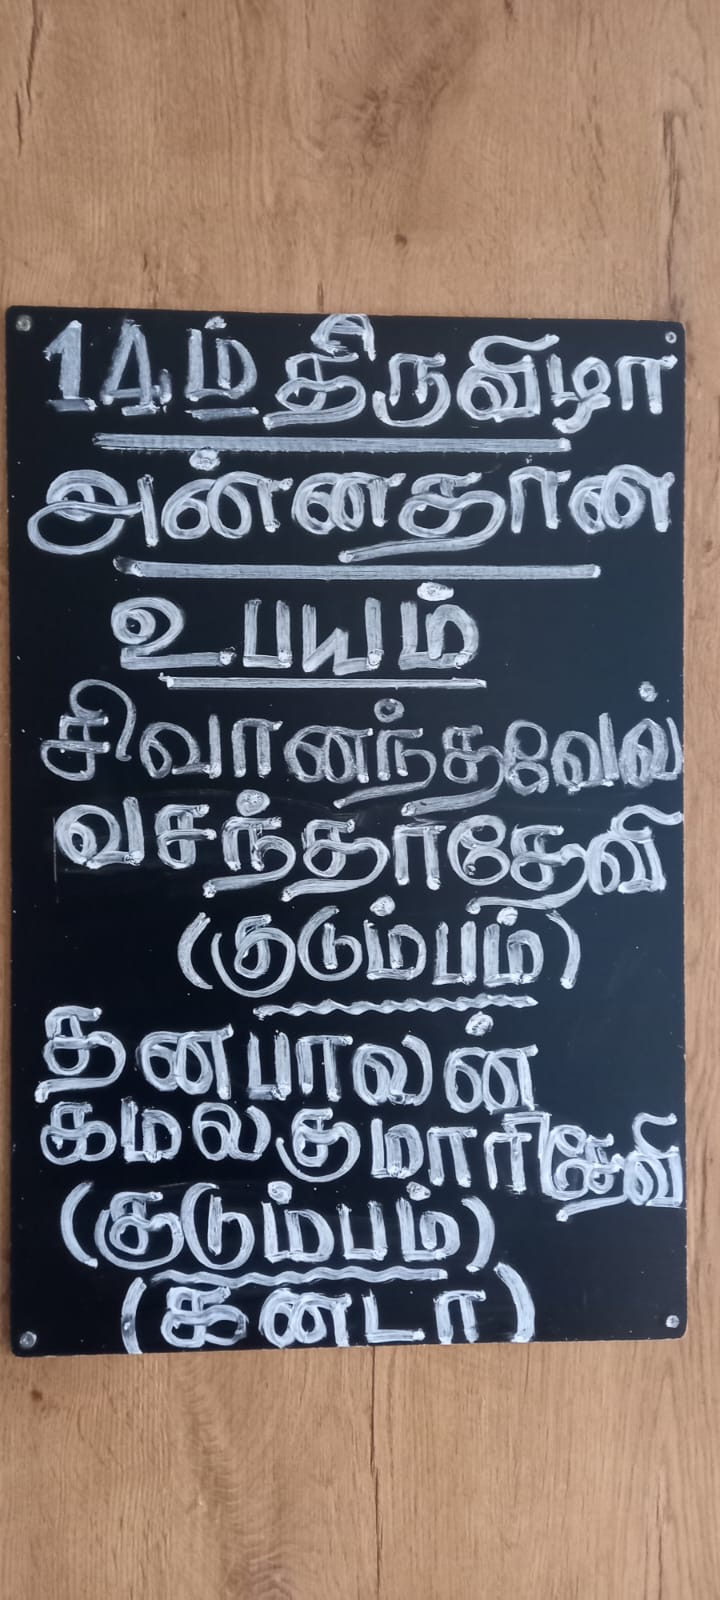 14ம் திருவிழா
அன்னதான
உபயம்
சிவானந்தவேல்
வசந்தாதேவி
(குடும்பம்)
தனபாலன்
கமலகுமாரிதேவி
(குடும்பம்)
(கனடா)